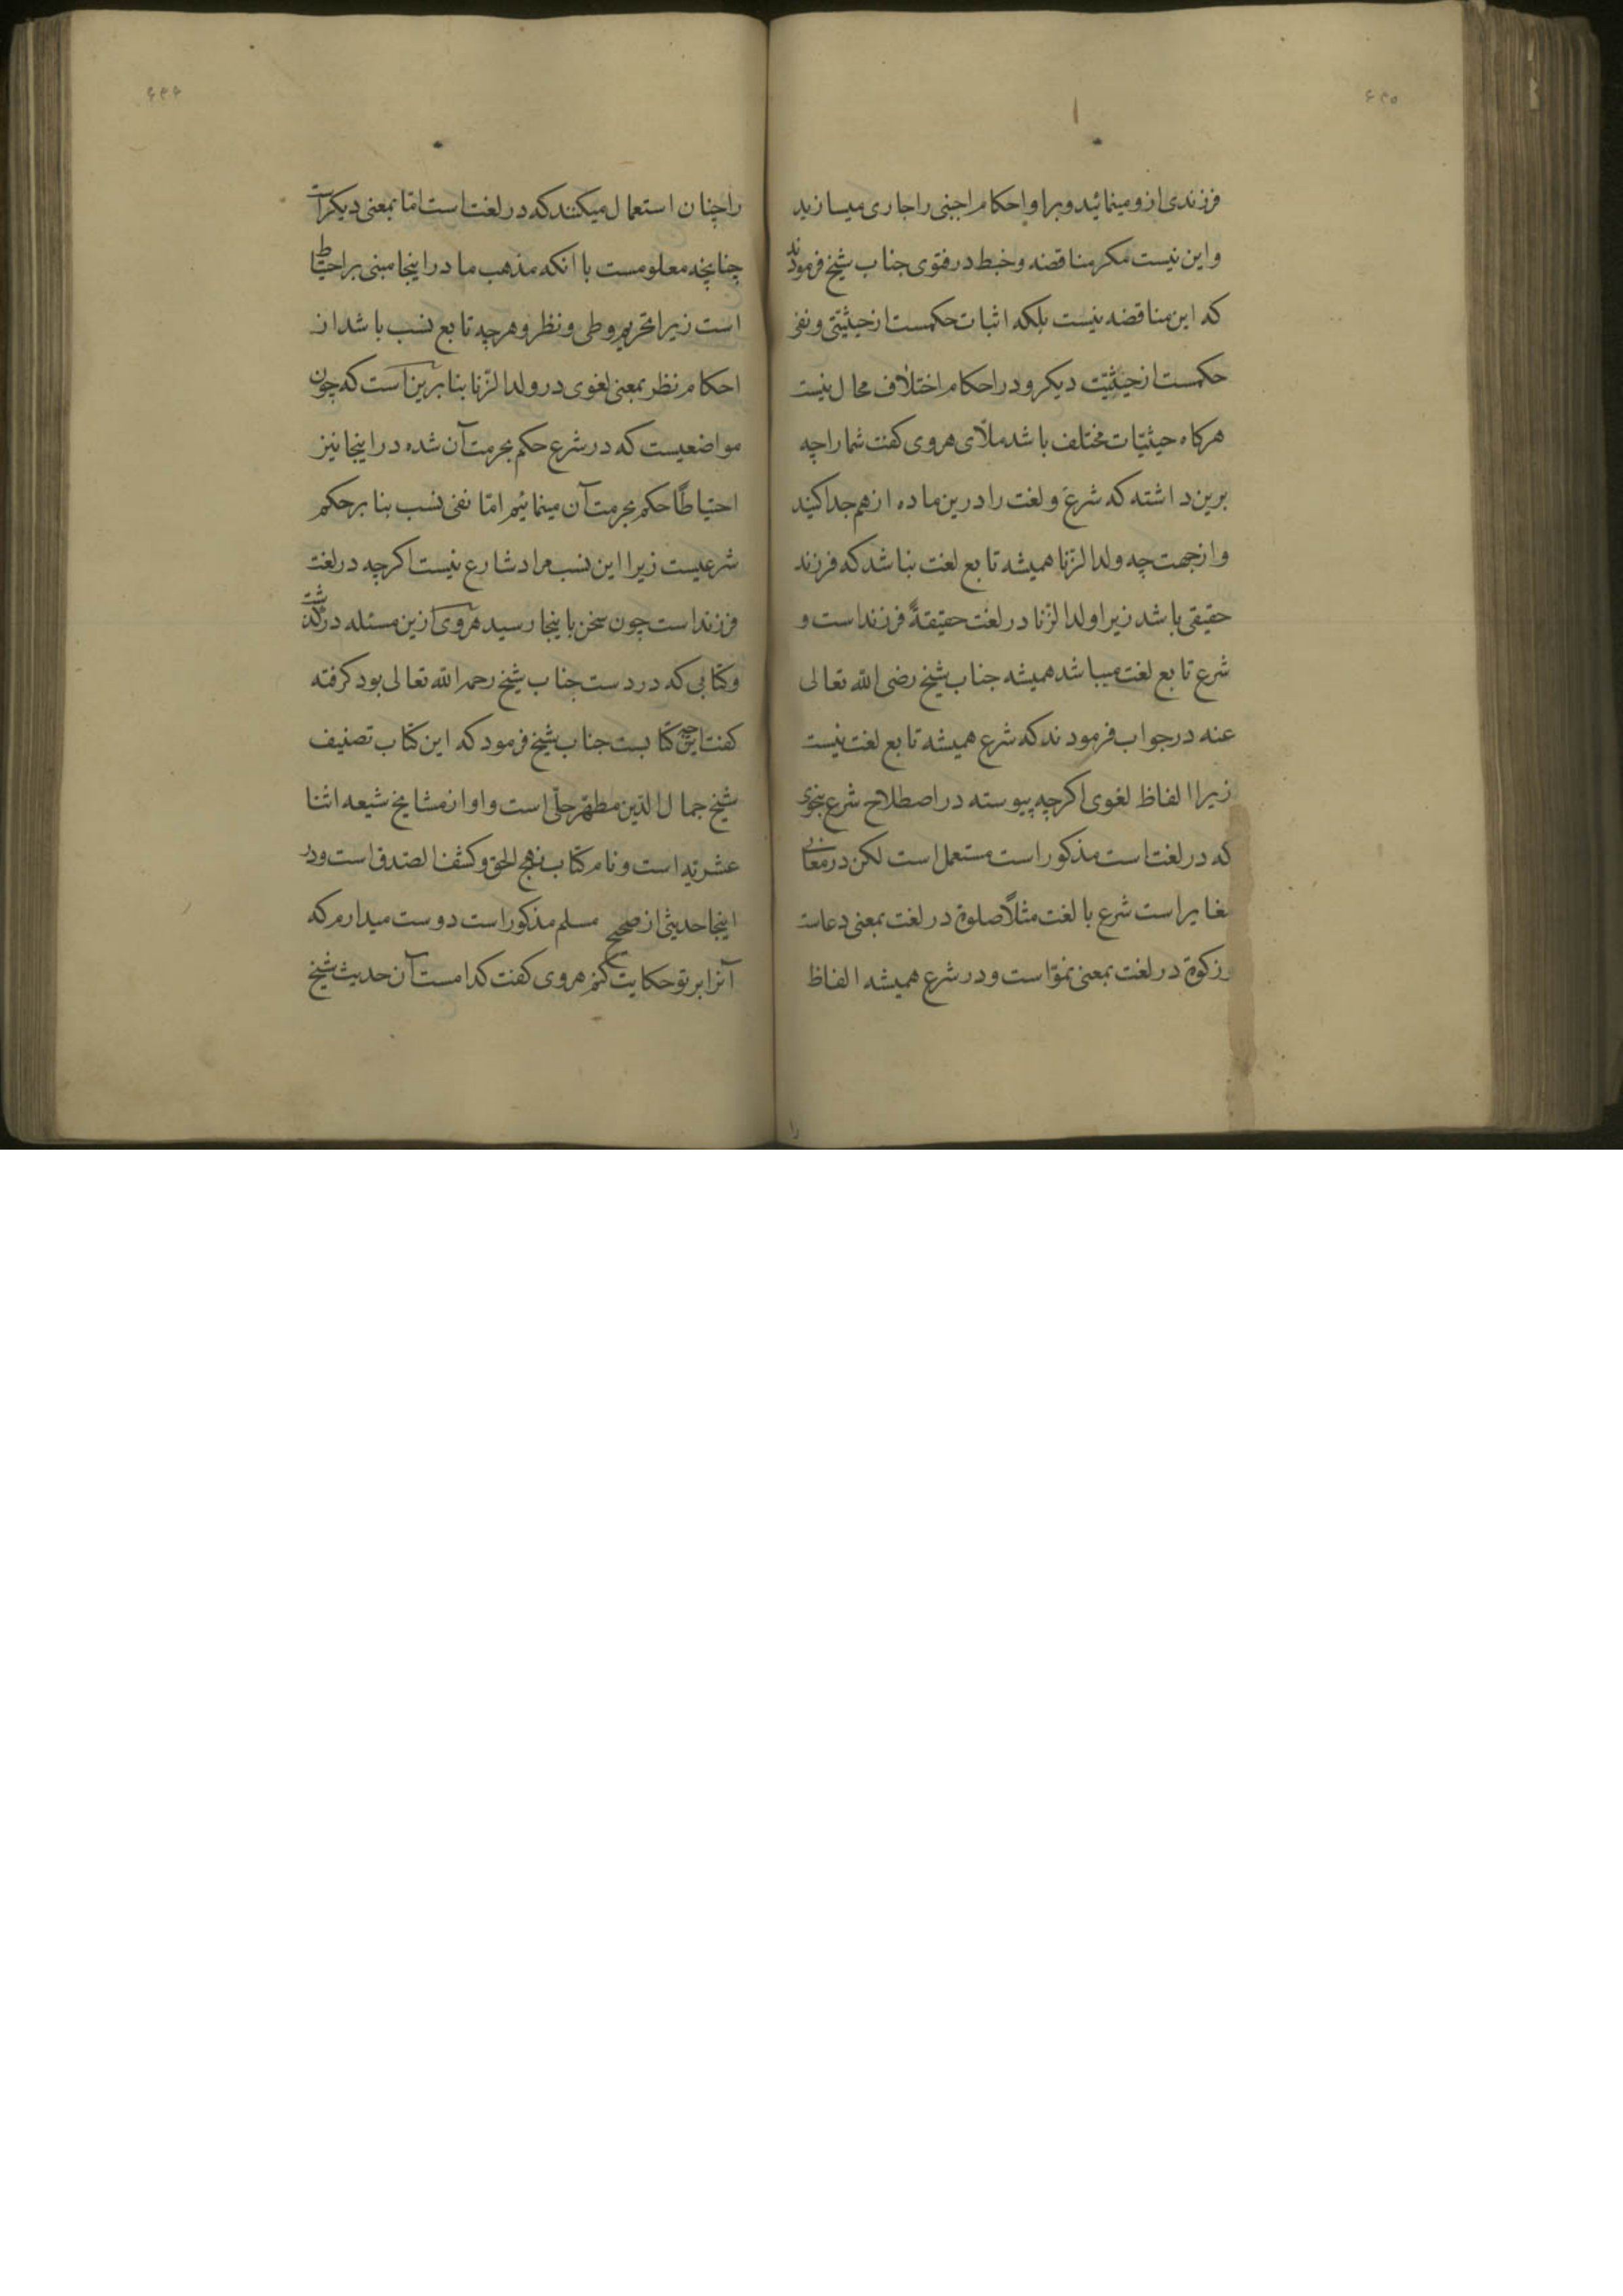 ۶۴۵
فرزندی ازو مینمائید و برا و احکام اجنبی را جاری میسازید
و این نیست مکر مناقضه و خبط در فتوی جناب شیخ فرمودند
که این مناقضه نیست بلکه اثبات حکمست از حیثیتی و نفی
حکمست از حیثیّت دیکر و در احکام اختلاف محال نیست
هرکاه حیثیّات مختلف باشد ملّای هروی کفت شما را چه
برین داشته که شرع و لغت را درین ماده از هم جدا کنید
و از جهت چه ولد الزّنا همیشه تابع لغت نباشد که فرزند
حقیقی باشد زیرا ولد الزّنا در لغت حقیقةً فرزند است و
شرع تابع لغت میباشد همیشه جناب شیخ رضی الله تعالی
عنه در جواب فرمودند که شرع همیشه تابع لغت نیست
زیرا الفاظ لغوی اکرچه پیوسته در اصطلاح شرع بنحوی
که در لغت است مذکور است مستعمل است لکن در معانی
مغایر است شرع با لغت مثلاً صلوة در لغت بمعنی دعاست
و زکوة در لغت بمعنی نموّ است و در شرع همیشه الفاظ
را
۶۴۶
را چنان استعمال میکنند که در لغت است امّا بمعنی دیکر است
چنانچه معلومست با آنکه مذهب ما در اینجا مبنی بر احتیاط
است زیرا تحریم وطی و نظر و هرچه تابع نسب باشد از
احکام نظر بمعنی لغوی در ولد الزّنا بنا برین است که چون
مواضعیست که در شرع حکم بحرمت آن شده در اینجا نیز
احتیاطاً حکم بحرمت آن مینمائیم امّا نفی نسب بنا بر حکم
شرعیست زیرا این نسب مراد شارع نیست اکرچه در لغت
فرزند است چون سخن باینجا رسید هروی ازین مسئله در کذشت
و کتابی که در دست جناب شیخ رحمه الله تعالی بود کرفته
کفت این چه کتابست جناب شیخ فرمود که این کتاب تصنیف
شیخ جمال الدّین مطهّر حلّی است و او از مشایخ شیعه اثنا
عشریّه است و نام کتاب نهج الحق و کشف الصّدق است و در
اینجا حدیثی از صحیح مسلم مذکور است دوست میدارم که
آنرا بر تو حکایت کنم هروی کفت کدامست آن حدیث شیخ